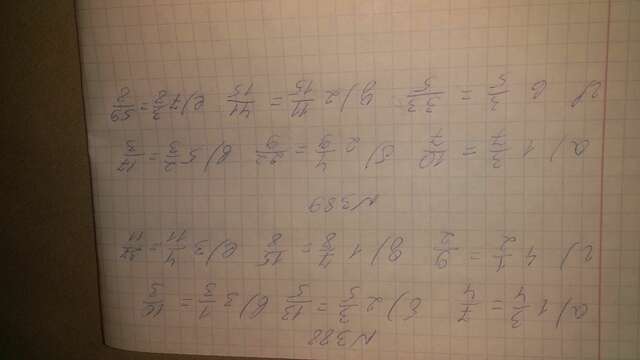 N388
а) 1 3/4 = 7/4 б) 2 3/5 = 13/5 в) 3 1/3 = 10/3
г) 4 1/2 = 9/2 д) 1 7/8 = 15/8 е) 3 4/11 = 37/11
N389
а) 1 3/7 = 10/7 б) 2 4/9 = 22/9 в) 5 2/3 = 17/3
г) 6 3/5 = 33/5 д) 2 11/15 = 41/15 е) 7 3/8 = 59/8